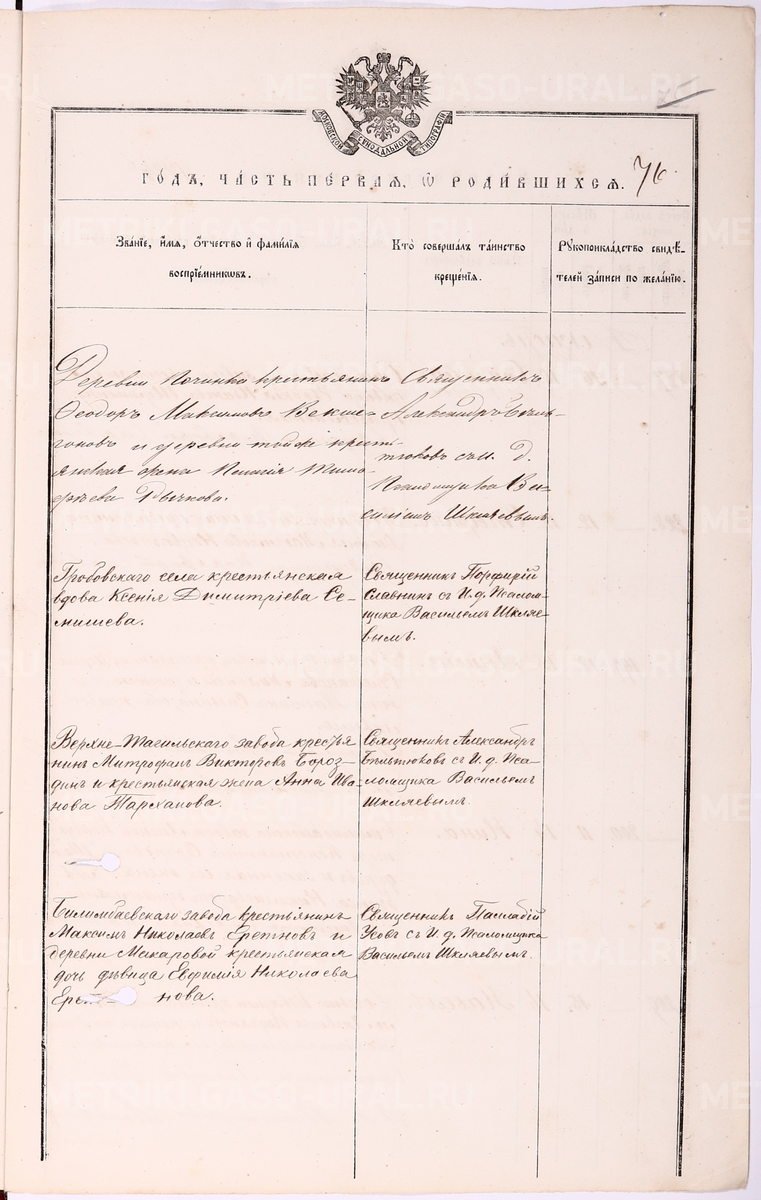 МОСКОВСКОЙ СѴНОДАЛЬНОМ ТИПОГРАФІИ
ГОДЪ, ЧАСТЬ ПЕРВАЯ, Ѡ РОДИВШИХСЯ. 76.
Званіе, имя, отчество и фамилія
воспріемниковъ.
Кто совершалъ таинство
крещенія.
Рукоприкладство свидѣ-
телей записи по желанію.
Деревни Починка крестьянинъ
Ѳеодоръ Максимовъ
и деревни тойже кресть-
янская жена Пелагія Тимо-
ѳеева Бычкова.
Священникъ
Александръ Бѣль-
тюковъ съ И. Д.
Псаломщика Ва-
силіемъ Шкляевымъ.
Гробовскаго села крестьянская
вдова Ксенія Димитріева Се-
нишева.
Священникъ Порфирій
Славнинъ съ И. д. Псалом-
щика Васильемъ Шкляе-
вымъ.
Верхне-Тагильскаго завода крестья-
нинъ Митрофанъ Викторовъ Бороз-
динъ и крестьянская жена Анна Ива-
нова Тарханова.
Священникъ Александръ
Бѣльтюковъ съ И. д. Пса-
ломщика Васильемъ
Шкляевымъ.
Билимбаевскаго завода крестьянинъ
Максимъ Николаевъ и
деревни Макаровой крестьянская
дочь дѣвица Евфимія Николаева
нова.
Священникъ Палладій
Усовъ съ И. д. Псаломщика
Васильемъ Шкляевымъ.
METRIKI.GASO-URAL.RU